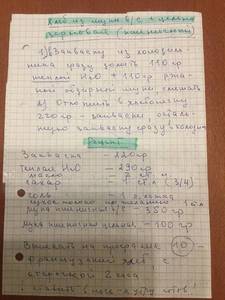 Хлеб из муки в/с и цельно
зерновой (пшеничной)
1) Закваску из холодиль
ника сразу залить 110 гр
теплой H₂O + 110 гр ржа
ной обдирной муки, смешать
2) Отложить в хлебопечку
220 гр - закваски, осталь
ную закваску сразу в холод
Рецепт:
Закваска - 220 гр
Теплая H₂O - 230 гр
масло - 2 ст. л
сахар - 1 ст. л (3/4)
соль - 1 ч. ложка
мука пшеничная в/с - 350 гр
мука пшеничная цельноз. - 100 гр
Выпекать на программе (10) -
французский хлеб с
отсрочкой 2 часа